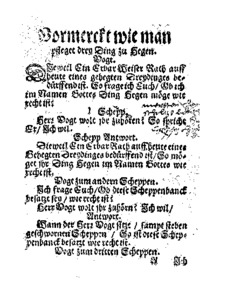 Vormerckt wie man
pfleget drey Ding zu Hegen.
Vogt.
Dieweil Ein Erbar Weiser Rath auff
heute eines gehegten Dreydinges be-
dürffend ist. So frage ich Euch / Ob ich
im Namen Gottes Ding Hegen möge wie
recht ist:
1 Schepp.
Herr Vogt wolt ihr zuhören? So spricht
Er / Ich wil.
Schepp Antwort.
Dieweil Ein Erbar Rath auff heute eines
Gehegten Dreydinges bedürffend ist / So mö-
get ihr Ding Hegen im Namen Gottes wie
recht ist.
Vogt zum andern Scheppen.
Ich frage Euch / Ob diese Scheppenbanck
besatzt sey / wie recht ist?
Herr Vogt wolt ihr zuhörn? Ich wil /
Antwort.
Wann der Herr Vogt sitzt / sampt sieben
geschwornen Scheppen / So ist diese Schep-
penbanck besatzt wie recht ist.
Vogt zum dritten Scheppen.
A Ich